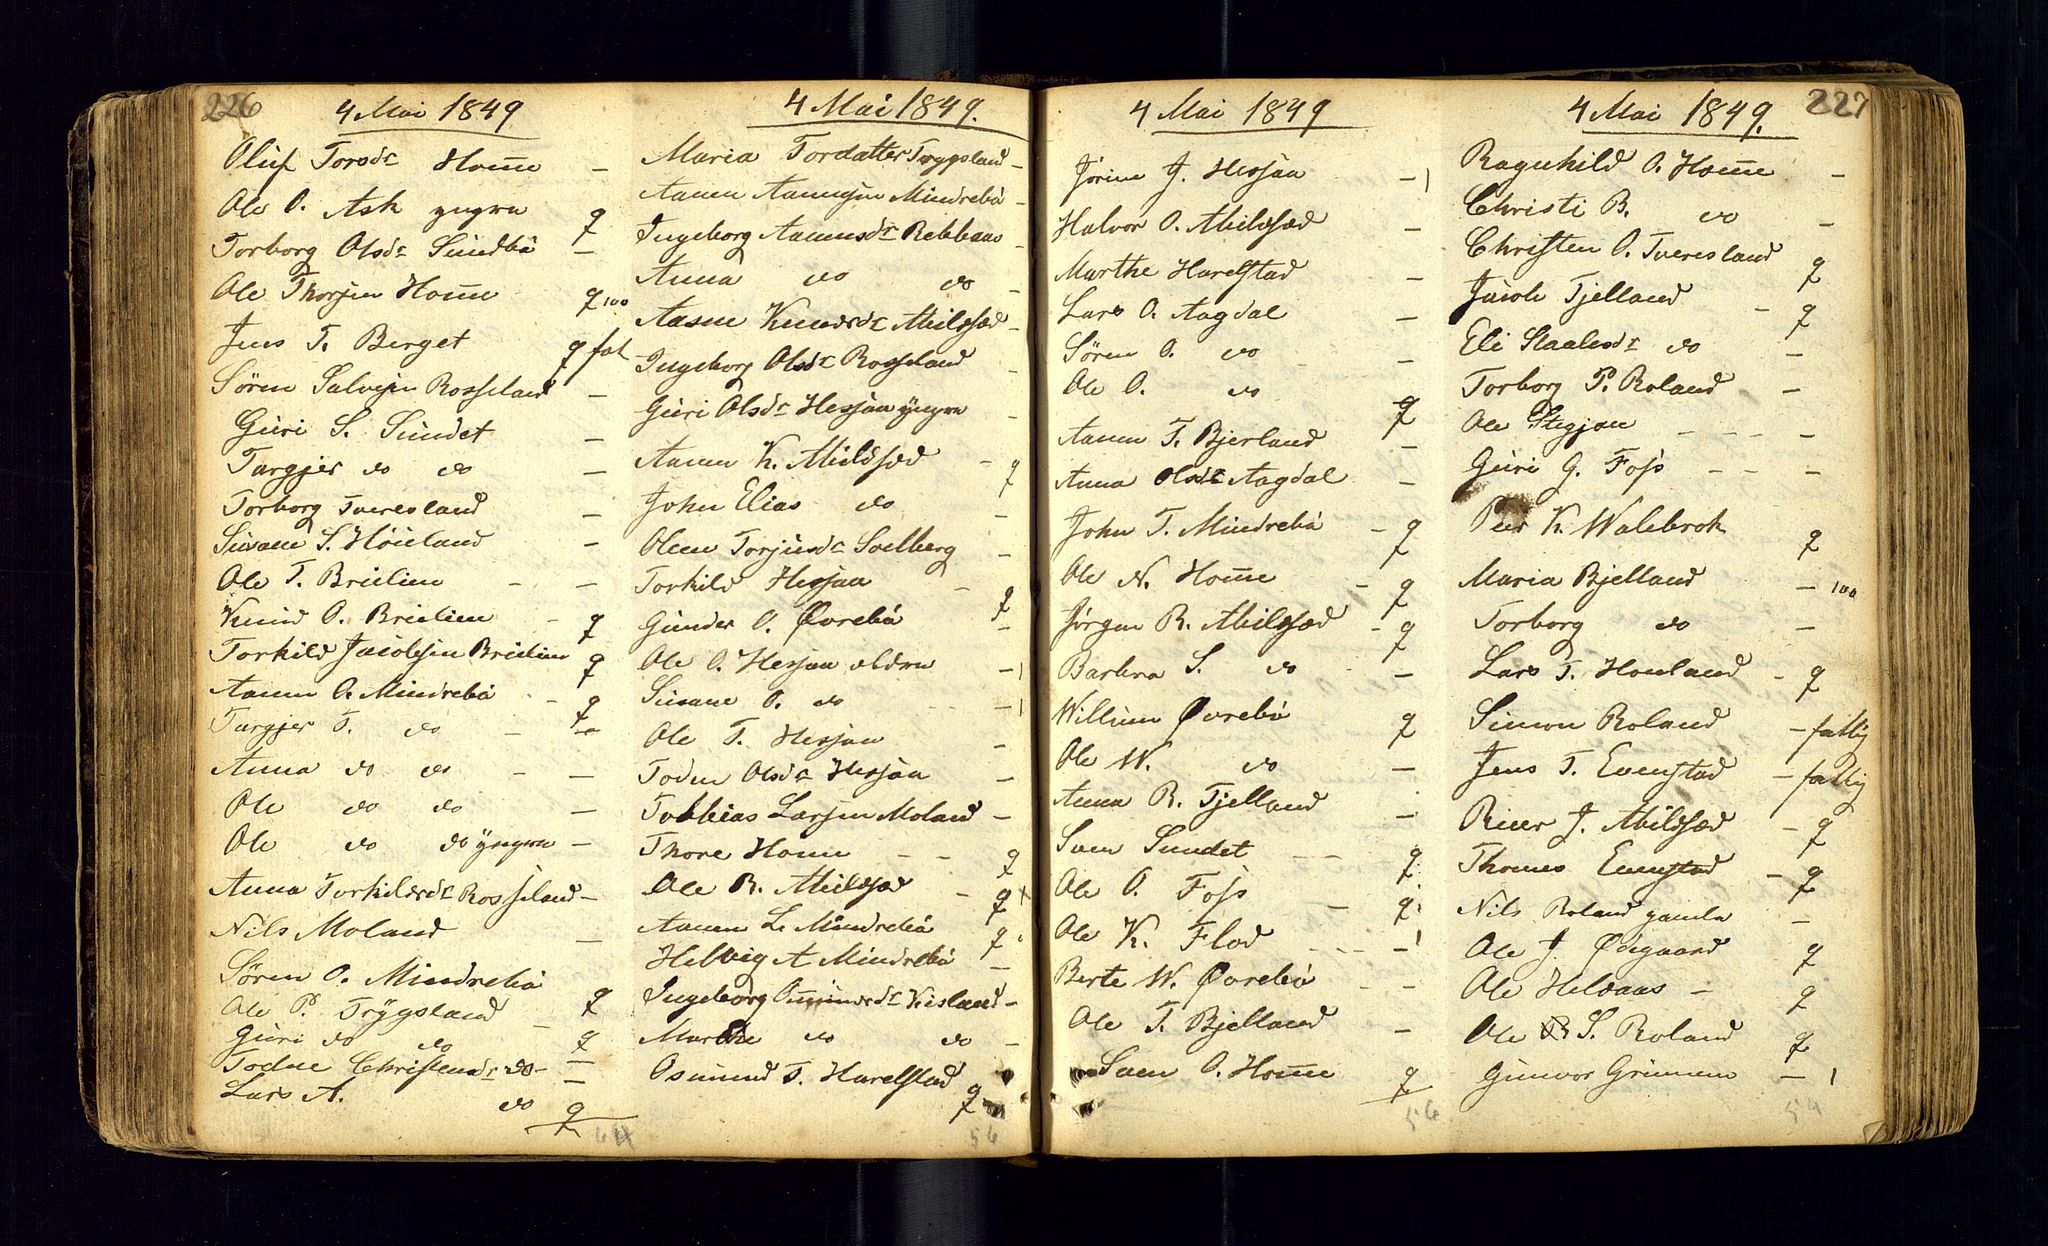 226
4 Mai 1849
Oluf Torsdr Home -
Ole O. Ask yngre q
Torborg Olsdr Sundbö -
Ole Thorsen Home q 100
Jens T. Berget q fat
Sören Salvesen Rosseland -
Guri S. Sundet -
Targjer do do -
Torborg Tveresland -
Susane S. Höieland -
Ole T. Breilien - -
Knud O. Breilien - q
Torkild Jacobsen Breilien q
Aanen O. Mindrebö - q
Targjer T. do - -
Anna do do - -
Ole do do -
Ole do do yngre -
Anna Torkildsdr Rosseland -
Nils Moland -
Sören O. Mindrebö q
Ole P. Trygsland - q
Guri do do -
Todne Christensdr do - -
Lars A. do q
64
4 Mai 1849.
Maria Tordatter Trygsland -
Aanen Aanensen Mindrebö -
Ingeborg Aanensdr Rebbaas -
Anna do do -
Aasne Knudsdr Abildsæd -
Ingeborg Olsdr Rosseland -
Guri Olsdr Hesjaa yngre -
Aanen K. Abildsæd - q
John Elias do -
Olene Torjusdr Solberg -
Torkild Hesjaa - q
Gunder O. Øvrebö -
Ole O. Hesjaa eldre - 1
Susane O. do - 1
Ole T. Hesjaa -
Toden Olsdr Hesjaa -
Tobbias Larsen Moland -
Thore Home - - q
Ole R. Abildsæd - q
Aanen L. Mindrebö q
Helvig A Mindrebö -
Ingeborg Omundsdr Kisland -
Marthe do do -
Osmund T. Harelstad q
56
4 Mai 1849
Jörine J. Hesjaa - 1
Halvor O. Abildsæd -
Marthe Harelstad -
Lars O. Aagdal -
Sören O. do -
Ole O. do q
Aanen T. Bjerland -
Anna Olsdr Aagdal -
John T. Mindrebö - q
Ole N. Home - q
Jörgen R. Abildsæd - q
Barbra S. do -
Willum Øvrebö q
Ole W. do -
Anna R. Tjelland -
Sven Sundet - - q
Ole O. Foss - q
Ole K. Flod - 1
Berte W. Øvrebö - -
Ole T. Bjelland -
Sven O. Home q
56
227
4 Mai 1849.
Ragnhild O. Home -
Christi B. do -
Christen O. Tveresland q
Jacob Tjelland - q
Eli Staalesdr do -
Torborg P. Roland -
Ole Stegjon - - - -
Guri G. Foss - - -
Peer K. Walebrok q
Maria Bjelland - 100
Torborg do -
Lars T. Houland - q
Simon Roland - fattig
Jens T. Evenstad - fattig
Reier J. Abildsæd - q
Thomes Evenstad - q
Nils Roland gamle -
Ole J. Ødegaard q
Ole Heldaas - q
Ole S. Roland q
Gunvor Grimem - 1
54